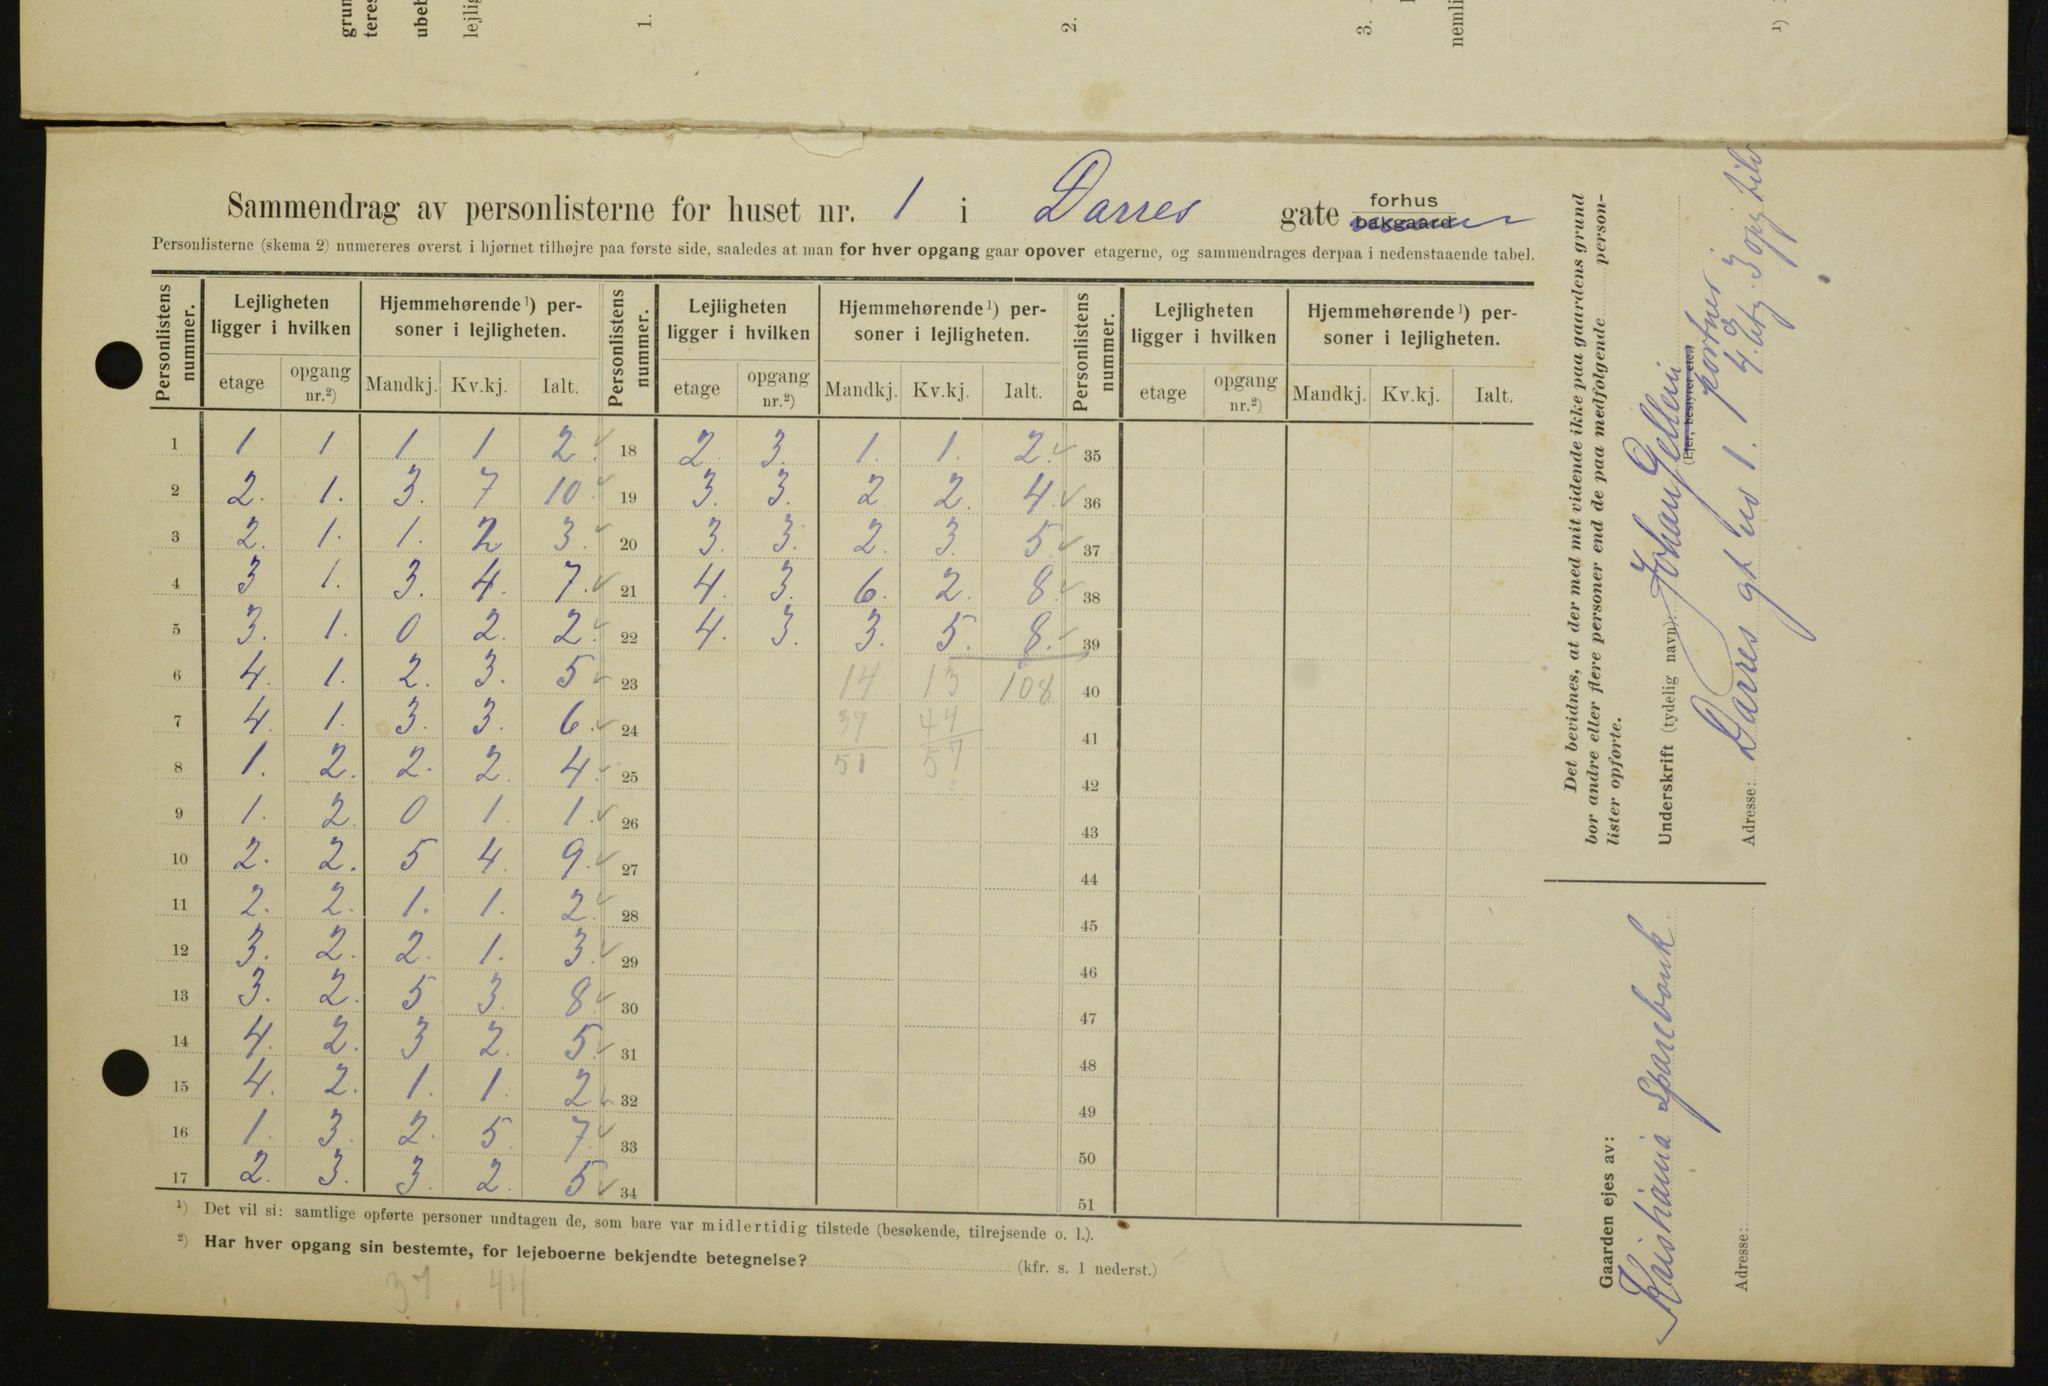 grun
teres
ubeb
lejlig
1.
2.
3.
nemli
¹)
Sammendrag av personlisterne for huset nr. 1 i Darres gate forhus bakgaard
Personlisterne (skema 2) numereres øverst i hjørnet tilhøjre paa første side, saaledes at man for hver opgang gaar opover etagerne, og sammendrages derpaa i nedenstaaende tabel.
Personlistens nummer. | Lejligheten ligger i hvilken | Hjemmehørende¹) personer i lejligheten. | Personlistens nummer. | Lejligheten ligger i hvilken | Hjemmehørende¹) personer i lejligheten. | Personlistens nummer. | Lejligheten ligger i hvilken | Hjemmehørende¹) personer i lejligheten.
etage | opgang nr.²) | Mandkj. | Kv.kj. | Ialt. | etage | opgang nr.²) | Mandkj. | Kv.kj. | Ialt. | etage | opgang nr.²) | Mandkj. | Kv.kj. | Ialt.
1 | 1 | 1 | 1 | 1 | 2 | 18 | 2. | 3. | 1. | 1. | 2. | 35
2 | 2. | 1. | 3. | 7 | 10 | 19 | 3. | 3. | 2 | 2. | 4 | 36
3 | 2. | 1. | 1. | 2 | 3. | 20 | 3. | 3. | 2. | 3. | 5 | 37
4 | 3 | 1. | 3. | 4. | 7. | 21 | 4. | 3. | 6. | 2. | 8. | 38
5 | 3. | 1. | 0 | 2. | 2. | 22 | 4. | 3. | 3. | 5. | 8. | 39
6 | 4. | 1. | 2. | 3. | 5 | 23 | 14 | 13 | 108 | 40
7 | 4. | 1. | 3. | 3. | 6. | 24 | 37 | 44 | 41
8 | 1. | 2. | 2. | 2. | 4. | 25 | 51 | 57 | 42
9 | 1. | 2. | 0 | 1. | 1. | 26 | 43
10 | 2. | 2. | 5 | 4. | 9. | 27 | 44
11 | 2. | 2. | 1. | 1. | 2. | 28 | 45
12 | 3. | 2. | 2. | 1. | 3. | 29 | 46
13 | 3. | 2. | 5 | 3. | 8 | 30 | 47
14 | 4. | 2. | 3 | 2. | 5. | 31 | 48
15 | 4. | 2. | 1. | 1. | 2 | 32 | 49
16 | 1. | 3. | 2. | 5. | 7. | 33 | 50
17 | 2. | 3. | 3. | 2. | 5 | 34 | 51
¹) Det vil si: samtlige opførte personer undtagen de, som bare var midlertidig tilstede (besøkende, tilrejsende o. l.).
²) Har hver opgang sin bestemte, for lejeboerne bekjendte betegnelse? (kfr. s. 1 nederst.)
37 44
Det bevidnes, at der med mit vidende ikke paa gaardens grund
bor andre eller flere personer end de paa medfølgende person-
lister opførte.
Underskrift (tydelig navn): Johan Gellein
(Ejer, bestyrer eller
Adresse: Darres gt no 1.
Gaarden ejes av:
Kristiania Sparebank
Adresse: